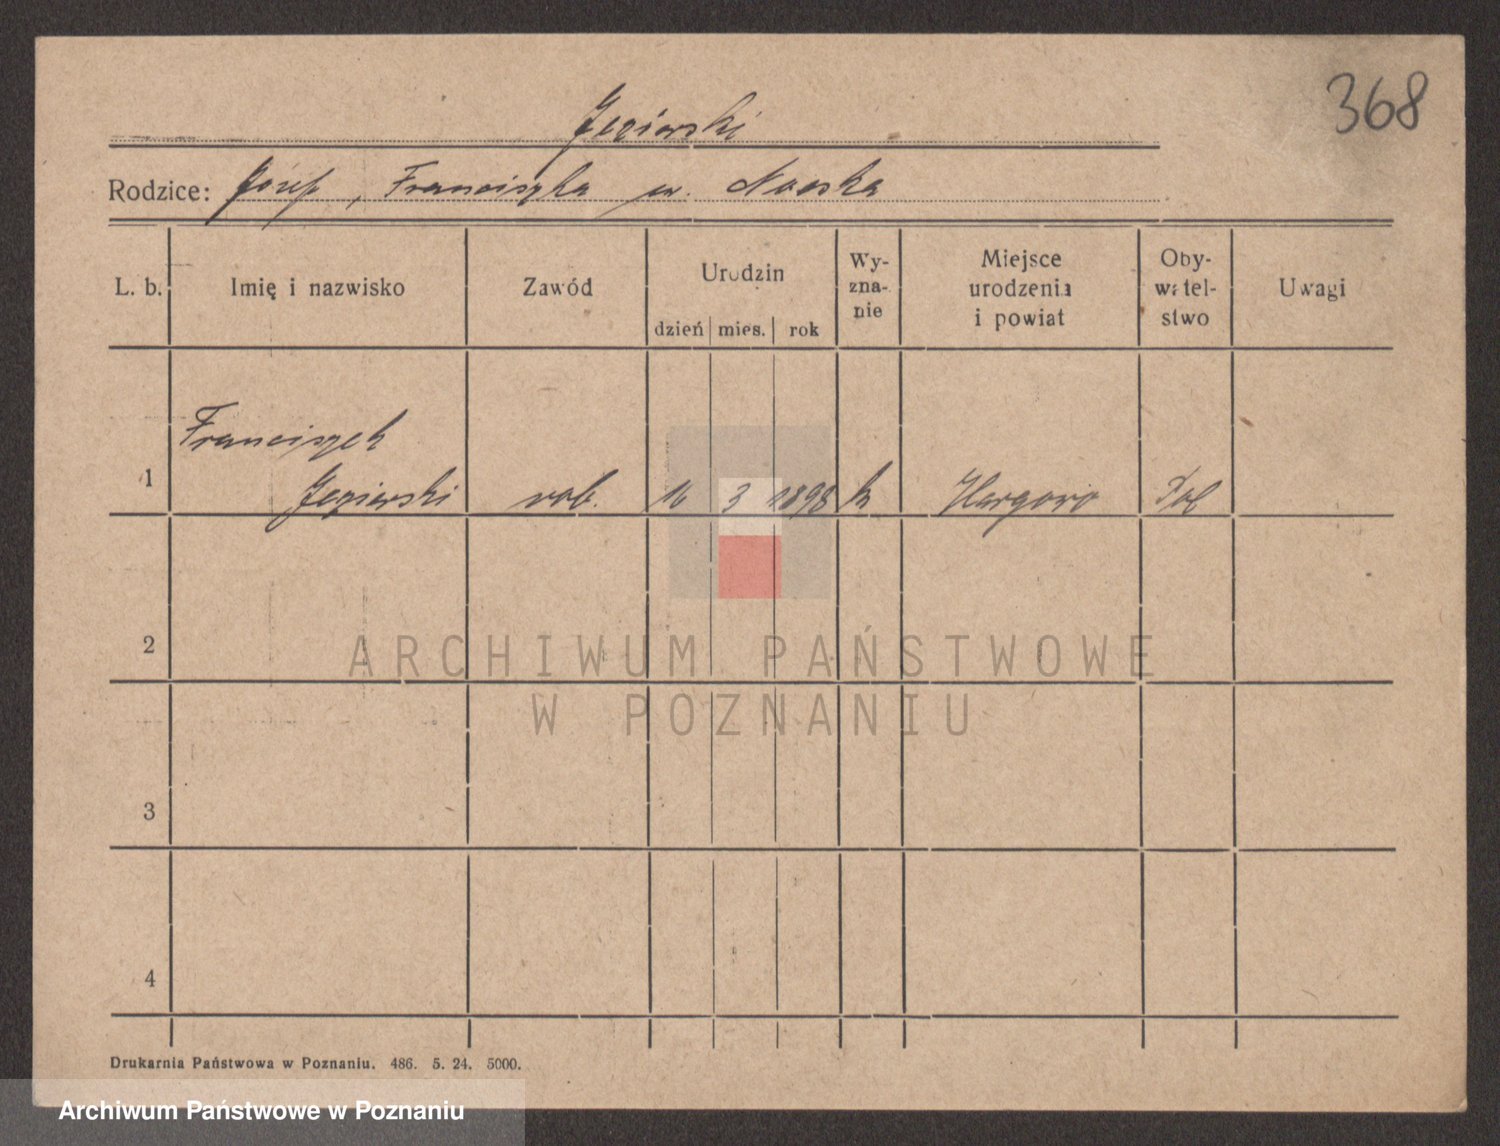 368
Jezierski
Rodzice: Józef, Franciszka
L. b. Imię i nazwisko Zawód Urodzin dzień mies. rok Wy-znanie Miejsce urodzenia i powiat Oby-watel-stwo Uwagi
Franciszek
1 Jezierski rob. 16 3 1898 k Pol
2
3
4
ARCHIWUM PAŃSTWOWE
W POZNANIU
Drukarnia Państwowa w Poznaniu. 486. 5. 24. 5000.
Archiwum Państwowe w Poznaniu